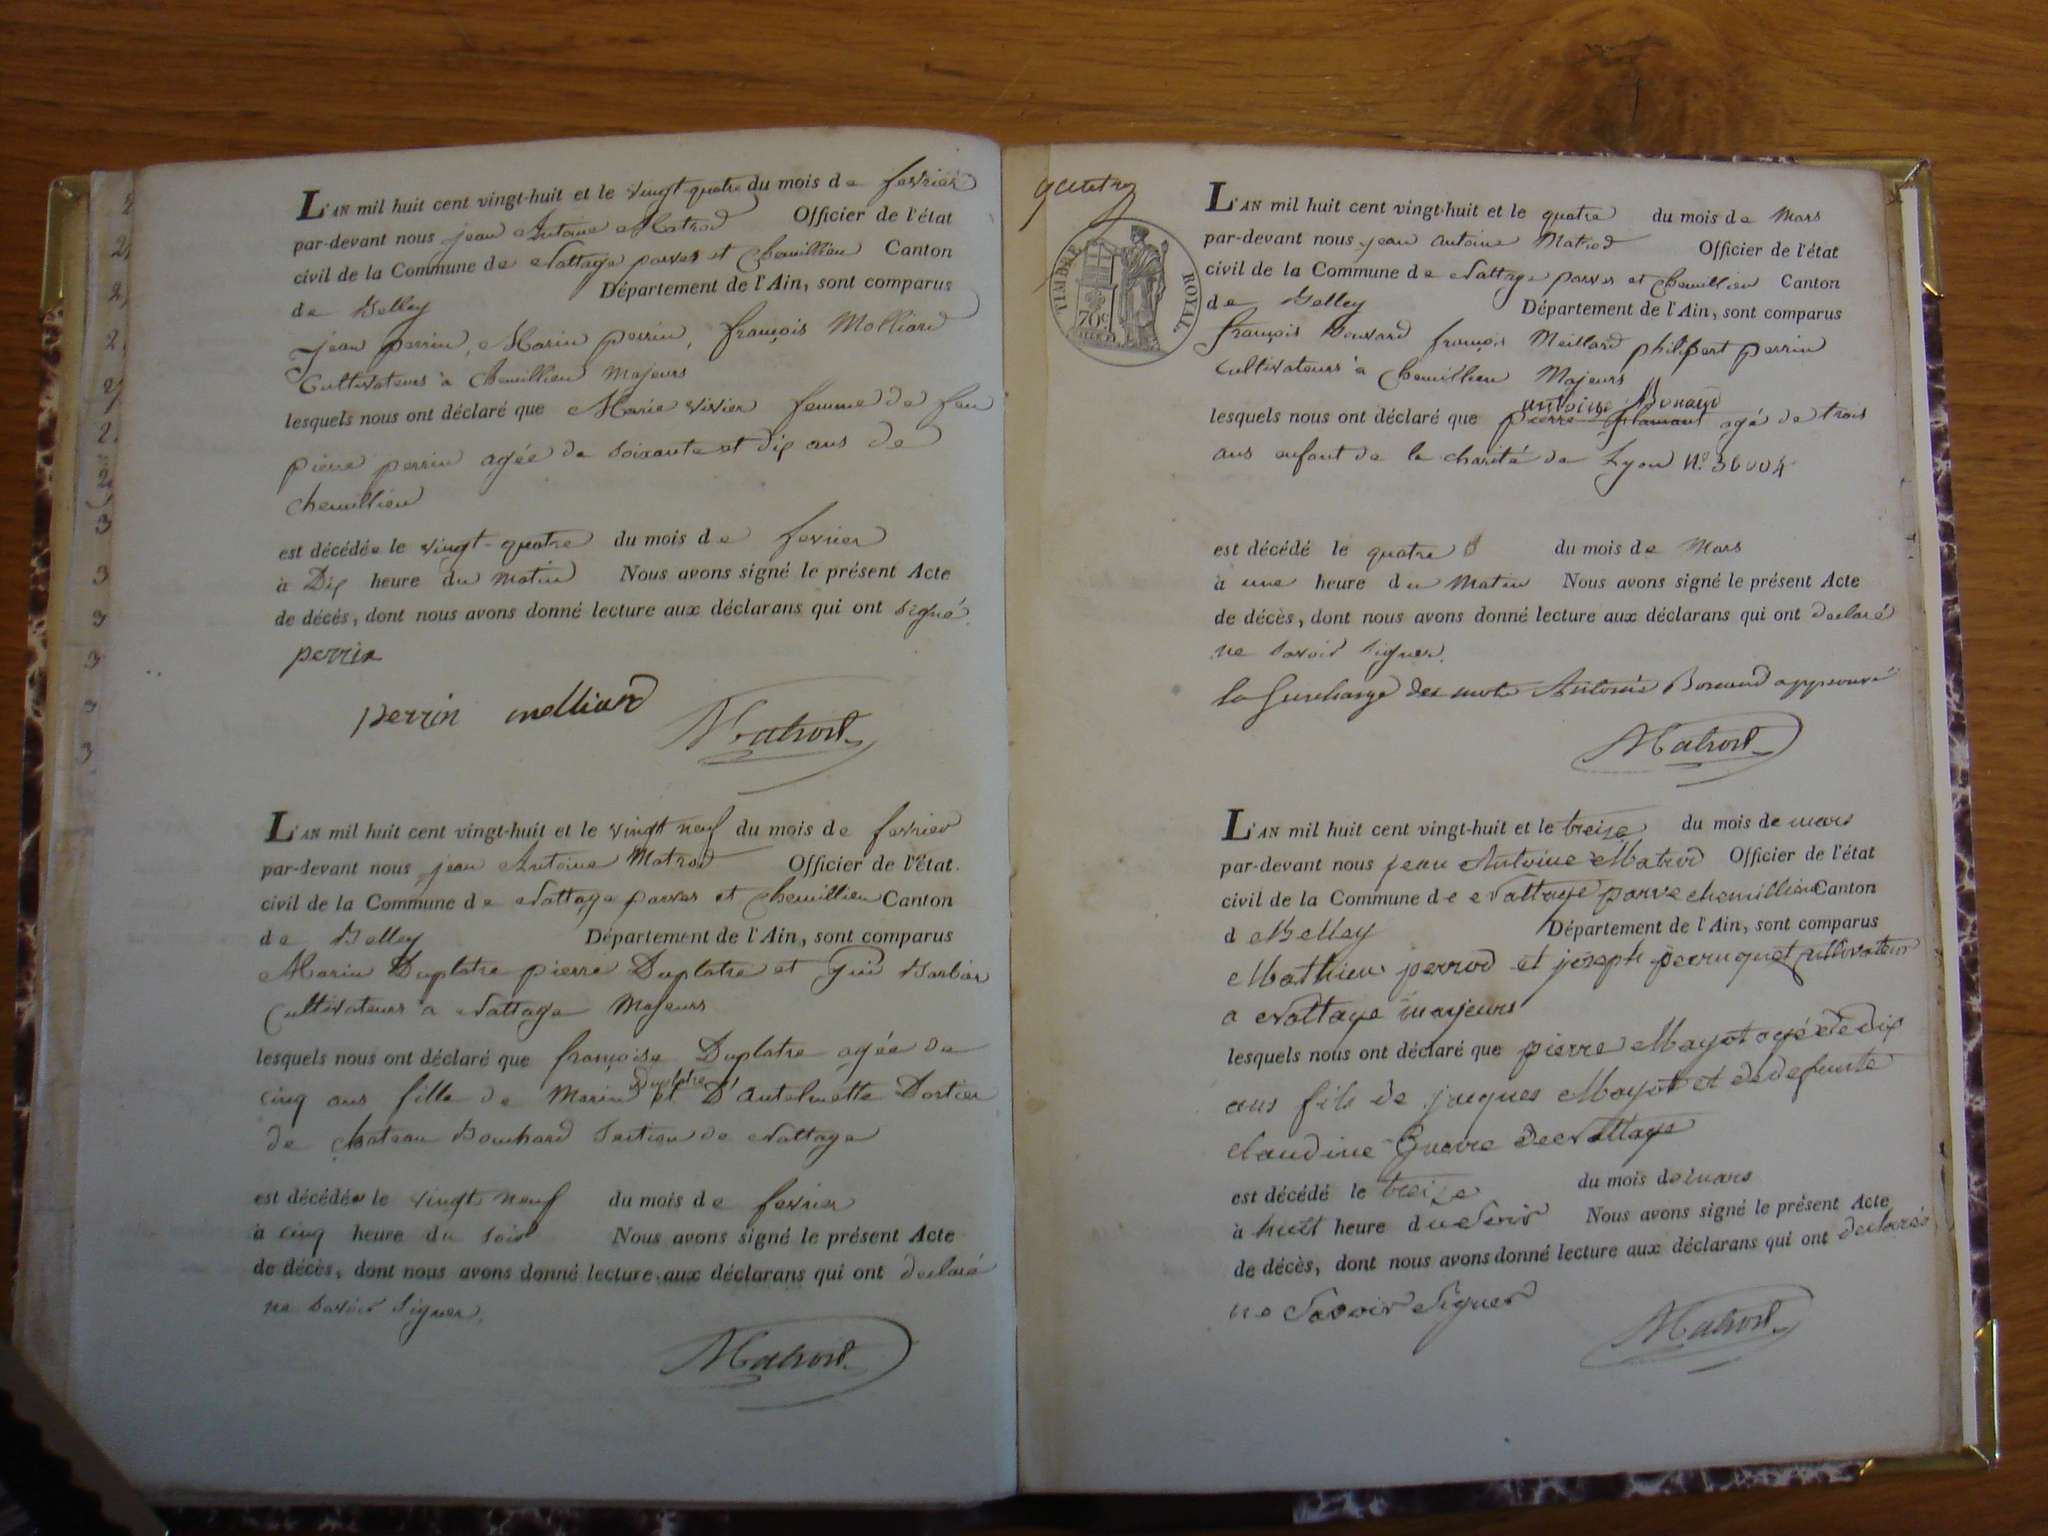 L'AN mil huit cent vingt-huit et le vingt-quatre du mois de fevrier
par-devant nous jean Antoine Matrod Officier de l'état
civil de la Commune de Nattage parves et Chemillieu Canton
de Belley Département de l'Ain, sont comparus
jean perrin, Marin perrin, françois Molliard
Cultivateurs à Chemillieu Majeurs
lesquels nous ont déclaré que Marie vivier femme de feu
pierre perrin agée de soixante et dix ans de
chemillieu
est décédée le vingt-quatre du mois de fevrier
à Dix heure du matin Nous avons signé le présent Acte
de décès, dont nous avons donné lecture aux déclarans qui ont signé.
perrin
perrin molliard
Matrod
L'AN mil huit cent vingt-huit et le vingt neuf du mois de fevrier
par-devant nous jean Antoine Matrod Officier de l'état
civil de la Commune de Nattage parves et Chemillieu Canton
de Belley Département de l'Ain, sont comparus
Marin Duplatre pierre Duplatre et Gui Barbier
Cultivateurs a Nattage Majeurs
lesquels nous ont déclaré que françoise Duplatre agée de
cinq ans fille de Marin Duplatre et D'antelmette Dortier
de chateau Bouchard Section de Nattage
est décédée le vingt neuf du mois de fevrier
à cinq heure du soir Nous avons signé le présent Acte
de décès, dont nous avons donné lecture aux déclarans qui ont declaré
ne savoir signer.
Matrod
TIMBRE ROYAL
70c
L'AN mil huit cent vingt-huit et le quatre du mois de Mars
par-devant nous jean antoine Matrod Officier de l'état
civil de la Commune de Nattage parves et Chemillieu Canton
de Belley Département de l'Ain, sont comparus
françois françois Meillard philibert perrin
Cultivateurs à Chemillieu Majeurs
antoine Bonard
lesquels nous ont déclaré que pierre agé de trois
ans enfant de la charité de Lyon N° 36004
est décédé le quatre du mois de Mars
à une heure du Matin Nous avons signé le présent Acte
de décès, dont nous avons donné lecture aux déclarans qui ont declaré
ne savoir signer.
la surcharge des mots Antoine Bonard approuvé
Matrod
L'AN mil huit cent vingt-huit et le treize du mois de mars
par-devant nous jean Antoine Matrod Officier de l'état
civil de la Commune de Nattage parve chemillieu Canton
de Belley Département de l'Ain, sont comparus
Mathieu perrod et joseph perruquet cultivateur
a Nattage majeurs
lesquels nous ont déclaré que pierre Mayot agé de dix
ans fils de jacques Mayot et de defunte
claudine Guerre de Nattage
est décédé le treize du mois de mars
à huit heure du soir Nous avons signé le présent Acte
de décès, dont nous avons donné lecture aux déclarans qui ont declarés
ne Savoir Signer
Matrod